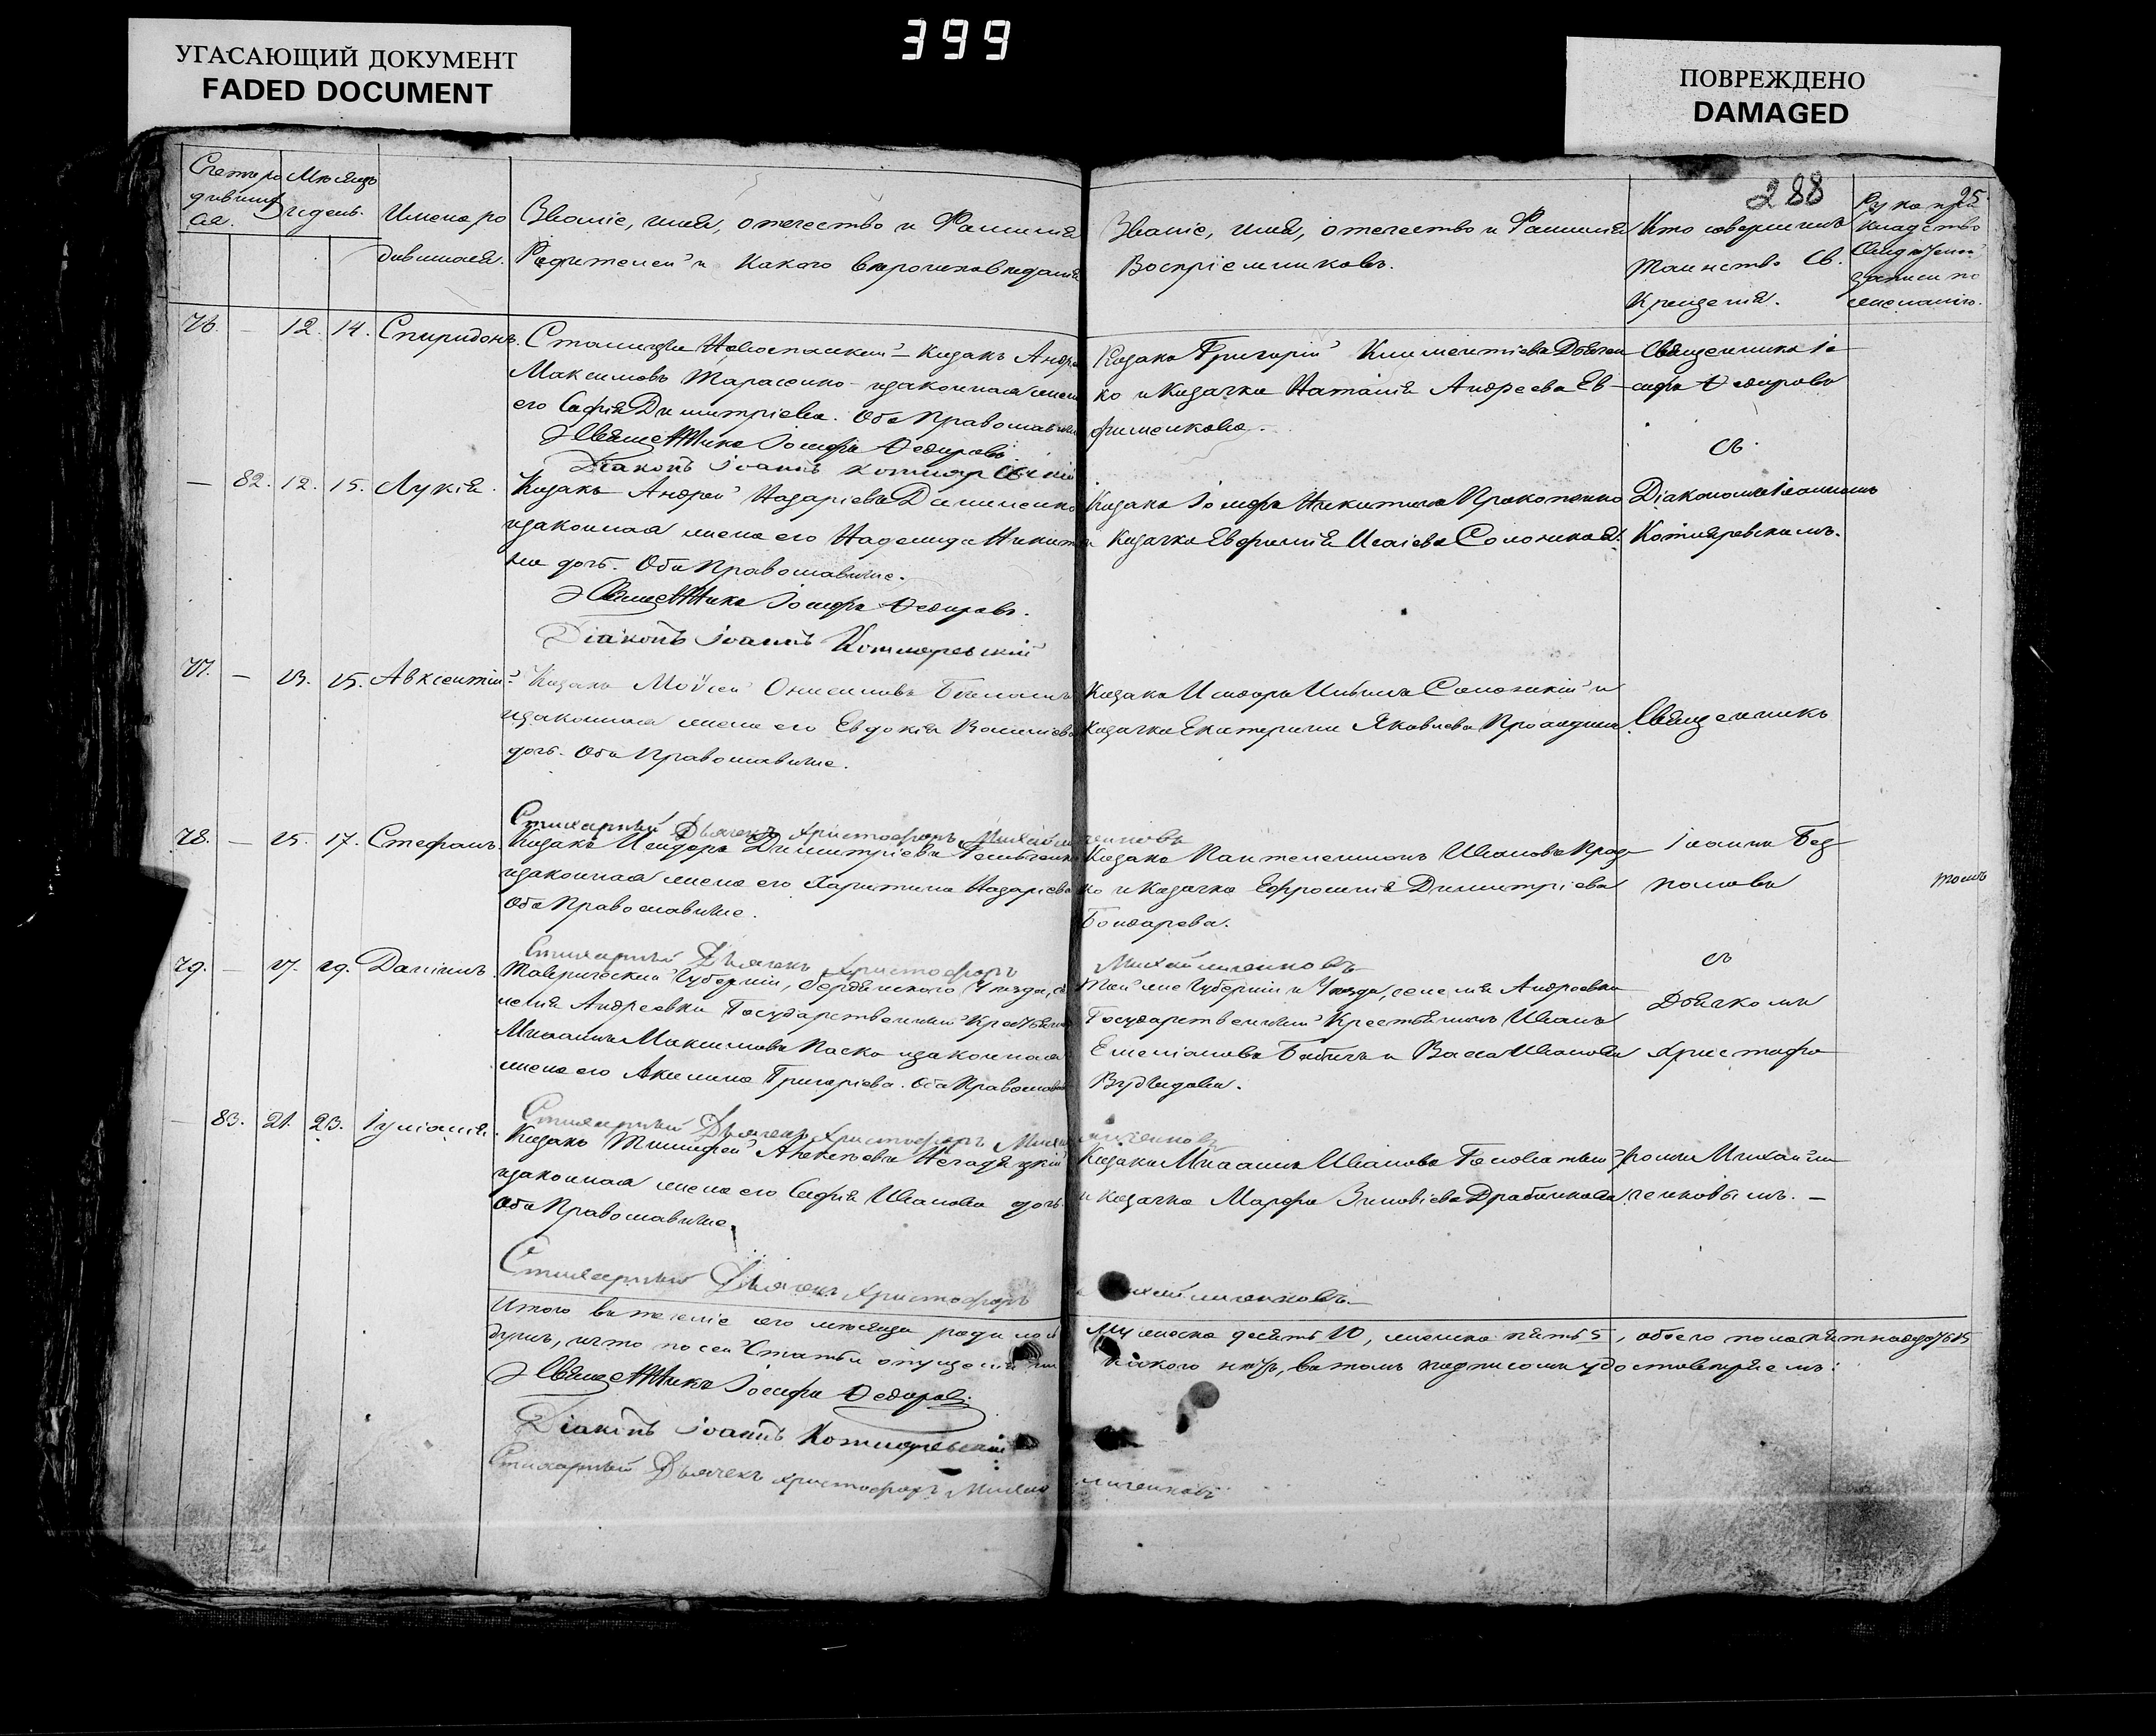 399
УГАСАЮЩИЙ ДОКУМЕНТ
FADED DOCUMENT
ПОВРЕЖДЕНО
DAMAGED
288
25
Счетъ ро Мѣсяцъ
дившиф И день.
ся.
Имена ро
дившихся.
Званіе, имя, отечество и Фамилія
Родителей и Какого вѣроисповѣданія
Званіе, имя, отечество и Фамилія
Воспріемниковъ.
Кто совершилъ
таинство Св.
Крещенія.
Рукопри
кладство
записи по
желанію.
76. — 12. 14. Спиридонъ. Станицы Новоспаской Козакъ Андре
Максимовъ Тарасенко и законная жена
его Софія Димитріева. Оба Православные
Священникъ Іосифъ Ѳедоровъ
Діаконъ Іоаннъ Котляревскій
Козакъ Григорій Климентіевъ Довжен
ко и Козачка Наталія Андреева Ев
фименкова.
Священникъ Іо
сифъ Ѳедоровъ
съ
— 82. 12. 15. Лукія. Козакъ Андрей Назаріевъ Димненко
и законная жена его Надежда Никити
на дочь. Оба Православные.
Священникъ Іосифъ Ѳедоровъ.
Діаконъ Іоаннъ Котляревскій
Козакъ Іосифъ Никитинъ Прокопенко
и Козачка Евфимія Исаіева Солоникая.
Діакономъ Іоанномъ
Котляревскимъ.
77. — 13. 15. Авксентій. Козакъ Моѵсей Онисимовъ
и законная жена его Евдокія Василіева
дочь. Оба Православные.
Козакъ Исидоръ и
козачка Екатерина Яковлева
Священникъ
Стихарный Дьячекъ Христофоръ Михайличенковъ
78. — 15. 17. Стефанъ. Козакъ Исидоръ Димитріевъ
и законная жена его Харитина Назаріева
Оба Православные.
Козакъ Пантелеимонъ Ивановъ
ко и Козачка Ефросинія Димитріева
Бондарева.
Іоаннъ Без
паловъ
Стихарный Дьячекъ Христофоръ Михайличенковъ
79. — 17. 19. Даніилъ. Таврической Губерніи, Бердянского Уѣзда, се
ленія Андреевки Государственный Крестьянинъ
Михаилъ Максимовъ Паско и законная
жена его Акилина Григоріева. Оба Православные
Той же Губерніи и Уѣзда, селенія Андреевки
Государственный Крестьянинъ Иванъ
Емеліановъ Бабичъ и Васса Иванова
съ
Дьячкомъ
Христофо
Стихарный Дьячекъ Христофоръ Михайличенковъ
— 83. 21. 23. Іуліанія. Козакъ Тимофей
и законная жена его Софія Иванова дочь.
Оба Православные
Козакъ Михаилъ Ивановъ
и козачка Марфа Зиновіева Драбинкова
ромъ Михайли
ченковымъ. —
Стихарный Дьячекъ Христофоръ Михайличенковъ
Итого въ теченіе сего мѣсяца родилось
мужеска десять 10, женска пять 5, обоего пола пятнадцать 15
душъ, и что по сей статьи опущенія
никакого нѣтъ, въ томъ подписомъ удостовѣряемъ:
Священникъ Іосифъ Ѳедоровъ
Діаконъ Іоаннъ Котляревскій
Стихарный Дьячекъ Христофоръ Михайличенковъ